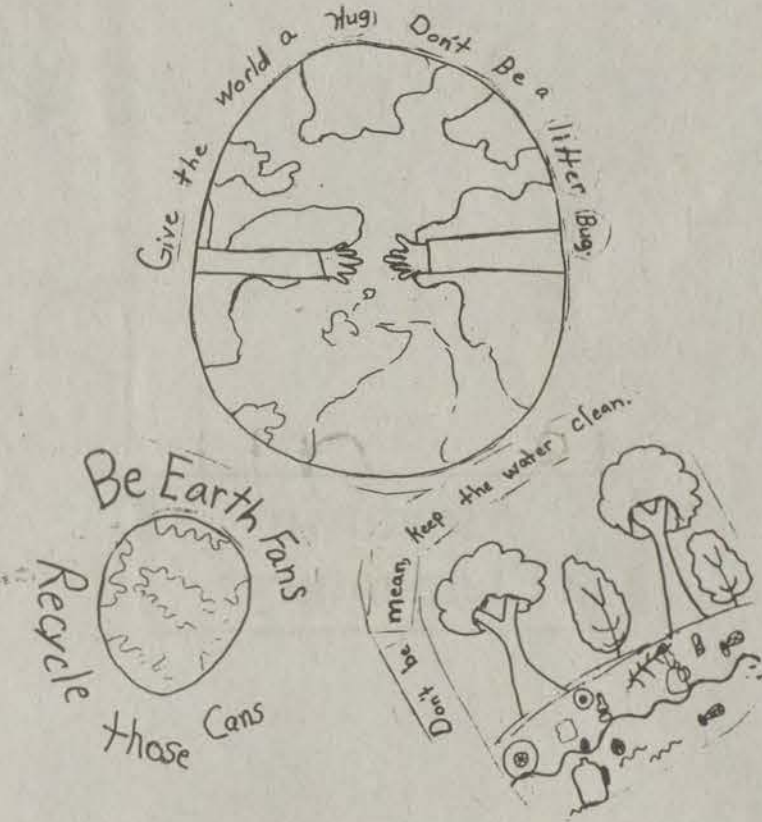 Give the world a Hug, Don't Be a litter Bug.
Be Earth Fans
Recycle those Cans
Don't be mean, keep the water clean.